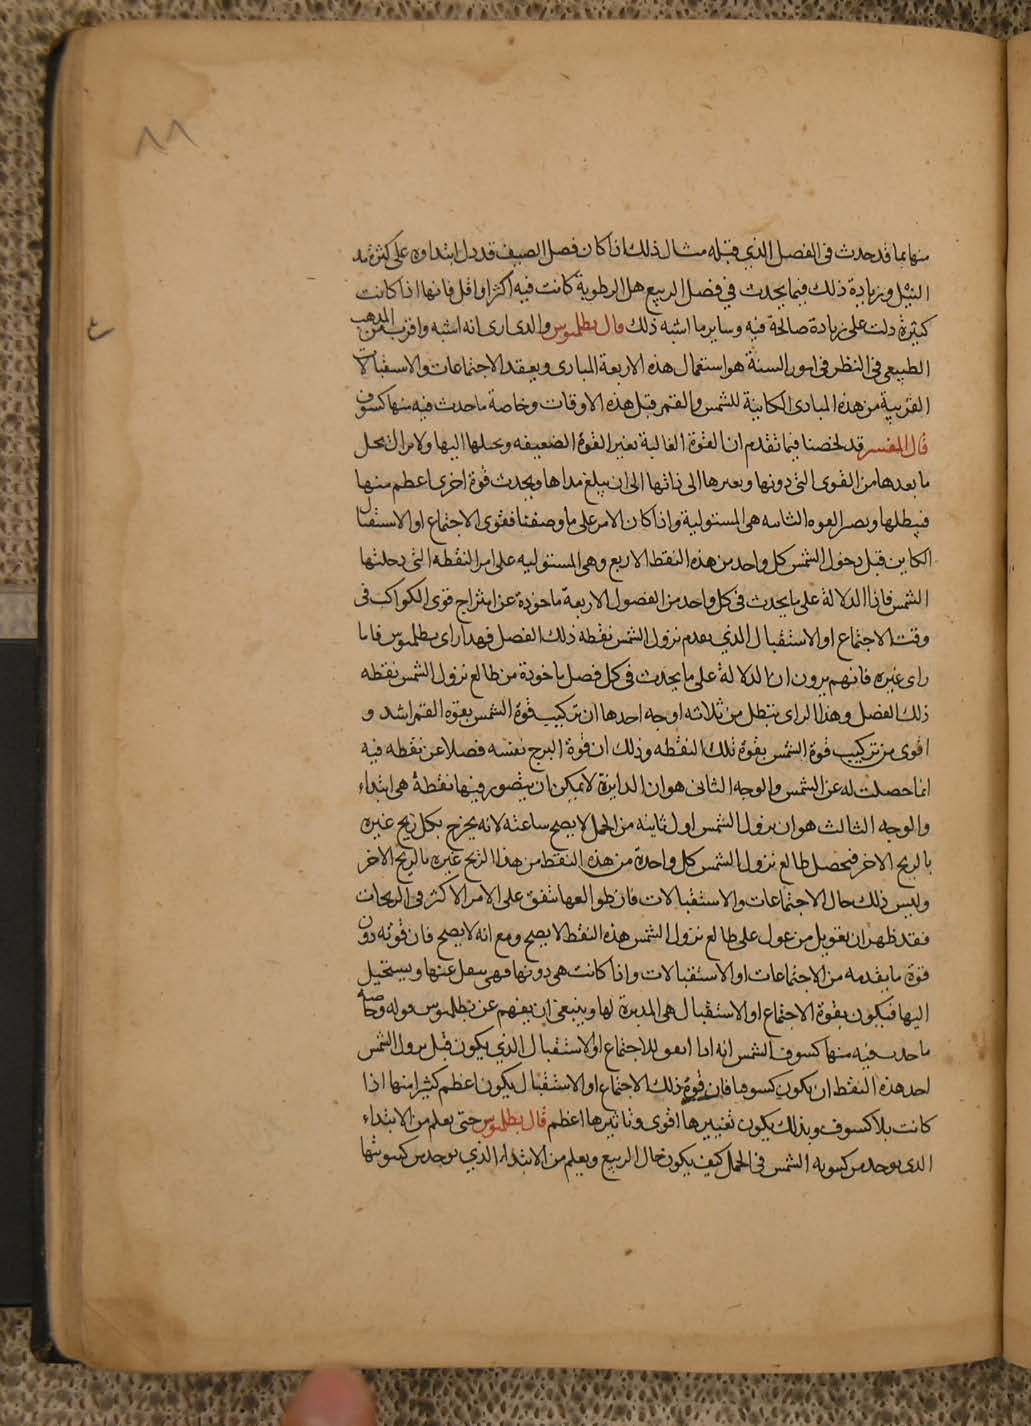 ٨٨
منها بما قد حدث فى الفصل الذي قبله مثال ذلك اذا كان فصل الصيف قد دل ابتداوه على كثرة مد
النيل وزيادة ذلك فيما يحدث في فصل الربيع هل الرطوبة كانت فيه اكثر او اقل فانها اذا كانت
كثيرة دلت على زيادة صالحة فيه وساير ما اشبه ذلك قال بطلميوس والذى ارى انه اشبه واقرب من المذهب
الطبيعى فى النظر فى امور السنة هو استعمال هذه الاربعة المبادى وبعقد الاجتماعات والاستقبالات
القريبة من هذه المبادى الكاينة للشمس والقمر قبل هذه الاوقات وخاصة ما حدث فيه منها كسوف
قال المفسر قد لخصنا فيما تقدم ان القوة الغالبة تغير القوة الضعيفه وتحيلها اليها ولا تزال تحيل
ما بعدها من القوى التى دونها وتغيرها الى ذاتها الى ان يبلغ مداها ويحدث قوة اخرى اعظم منها
فيبطلها وتصير القوه الثانيه هى المستولية واذا كان الامر على ما وصفنا فقوى الاجتماع او الاستقبال
الكاين قبل دخول الشمس كل واحد من هذه النقط الاربع وهى المستوليه على امر النقطه التى دخلتها
الشمس فاذا الدلالة على ما يحدث فى كل واحد من الفصول الاربعة ماخوذة عن امتزاج قوى الكواكب فى
وقت الاجتماع او الاستقبال الذي يقدم نزول الشمس نقطه ذلك الفصل فهذا راى بطلميوس فاما
راى غيره فانهم يرون ان الدلالة على ما يحدث فى كل فصل ماخوذة من طالع نزول الشمس نقطه
ذلك الفصل وهذا الراى يبطل من ثلاثه اوجه احدها ان تركيب قوة الشمس بقوه القمر اشد و
اقوى من تركيب قوة الشمس بقوة تلك النقطه وذلك ان قوة البرج نفسه فصلا عن نقطه فيه
انما حصلت له عن الشمس والوجه الثانى هو ان الدايرة لا يمكن ان يتصور فيها نقطة هى ابتداء
والوجه الثالث هو ان نزول الشمس اول ثانيه من الحمل لا يصح ساعته لانه يخرج بكل زيج غيره
بالزيج الاخر فيحصل طالع نزول الشمس كل واحدة من هذه النقط من هذا الزيج غيره بالزيج الاخر
وليس ذلك حال الاجتماعات والاستقبالات فان طوالعها تتفق على الامر الاكثر فى الزيجات
فقد ظهر ان تعويل من عول على طالع نزول الشمس هذه النقط لا يصح ومع انه لا يصح فان قوته دون
قوة ما يقدمه من الاجتماعات او الاستقبالات واذا كانت هى دونها فهى تنفعل عنها ويستحيل
اليها فيكون بقوة الاجتماع او الاستقبال هى المدبرة لها وينبغى ان يفهم عن بطلميوس قوله وخاصه
ما حدث فيه منها كسوف الشمس انه اذا اتفق للاجتماع او الاستقبال الذي يكون قبل نزول الشمس
احد هذه النقط ان يكون كسوفا فان قوة ذلك الاجتماع او الاستقبال يكون اعظم كثيرا منها اذا
كانت بلا كسوف وبذلك يكون تغييرها اقوى وتاثيرها اعظم قال بطلميوس حتى يعلم من الابتداء
الذى يوجد من كينونه الشمس فى الحمل كيف يكون حال الربيع ويعلم من الابتداء الذي يوجد من كينونتها